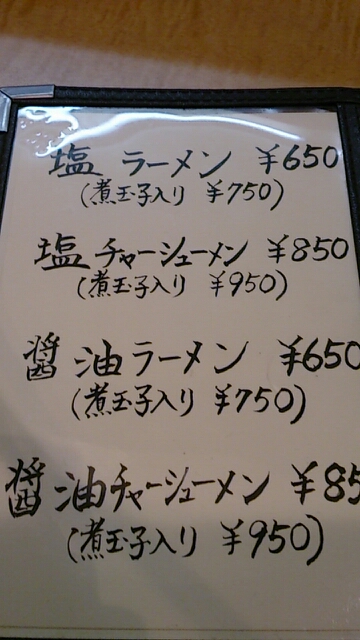 塩 ラーメン ¥650
(煮玉子入り ¥750)
塩 チャーシューメン ¥850
(煮玉子入り ¥950)
醤油ラーメン ¥650
(煮玉子入り ¥750)
醤油チャーシューメン ¥85
(煮玉子入り ¥950)